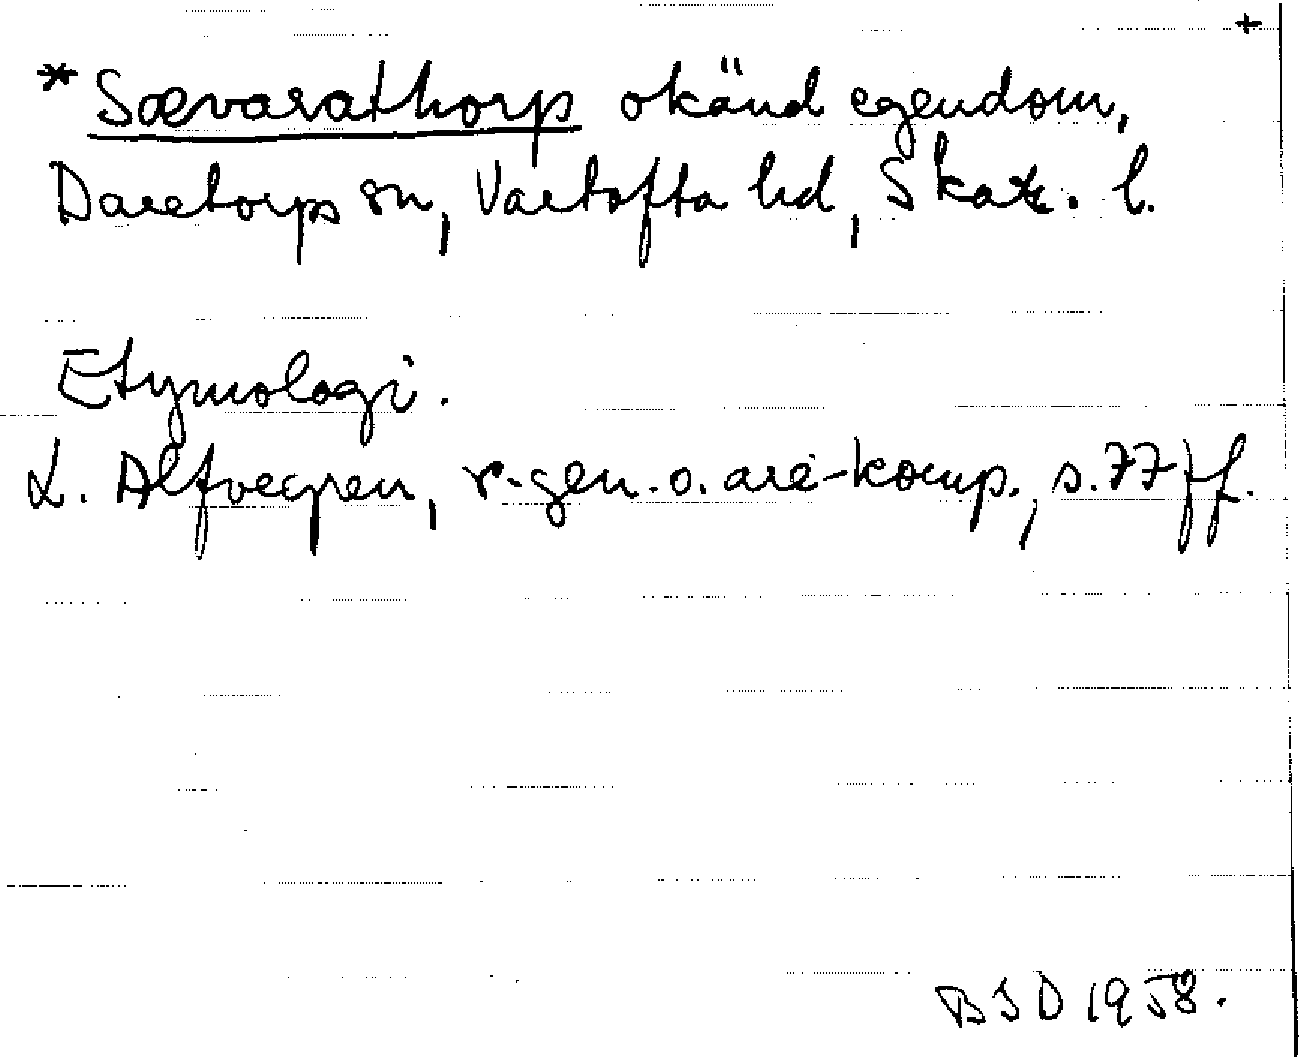 +
*Sævarathorp okänd egendom,
Daretorps sn, Vartofta hd, Skar. l.
Etymologi.
L. Alfvegren, r-gen. o. are-komp., s. 77 ff.
BSD 1958.